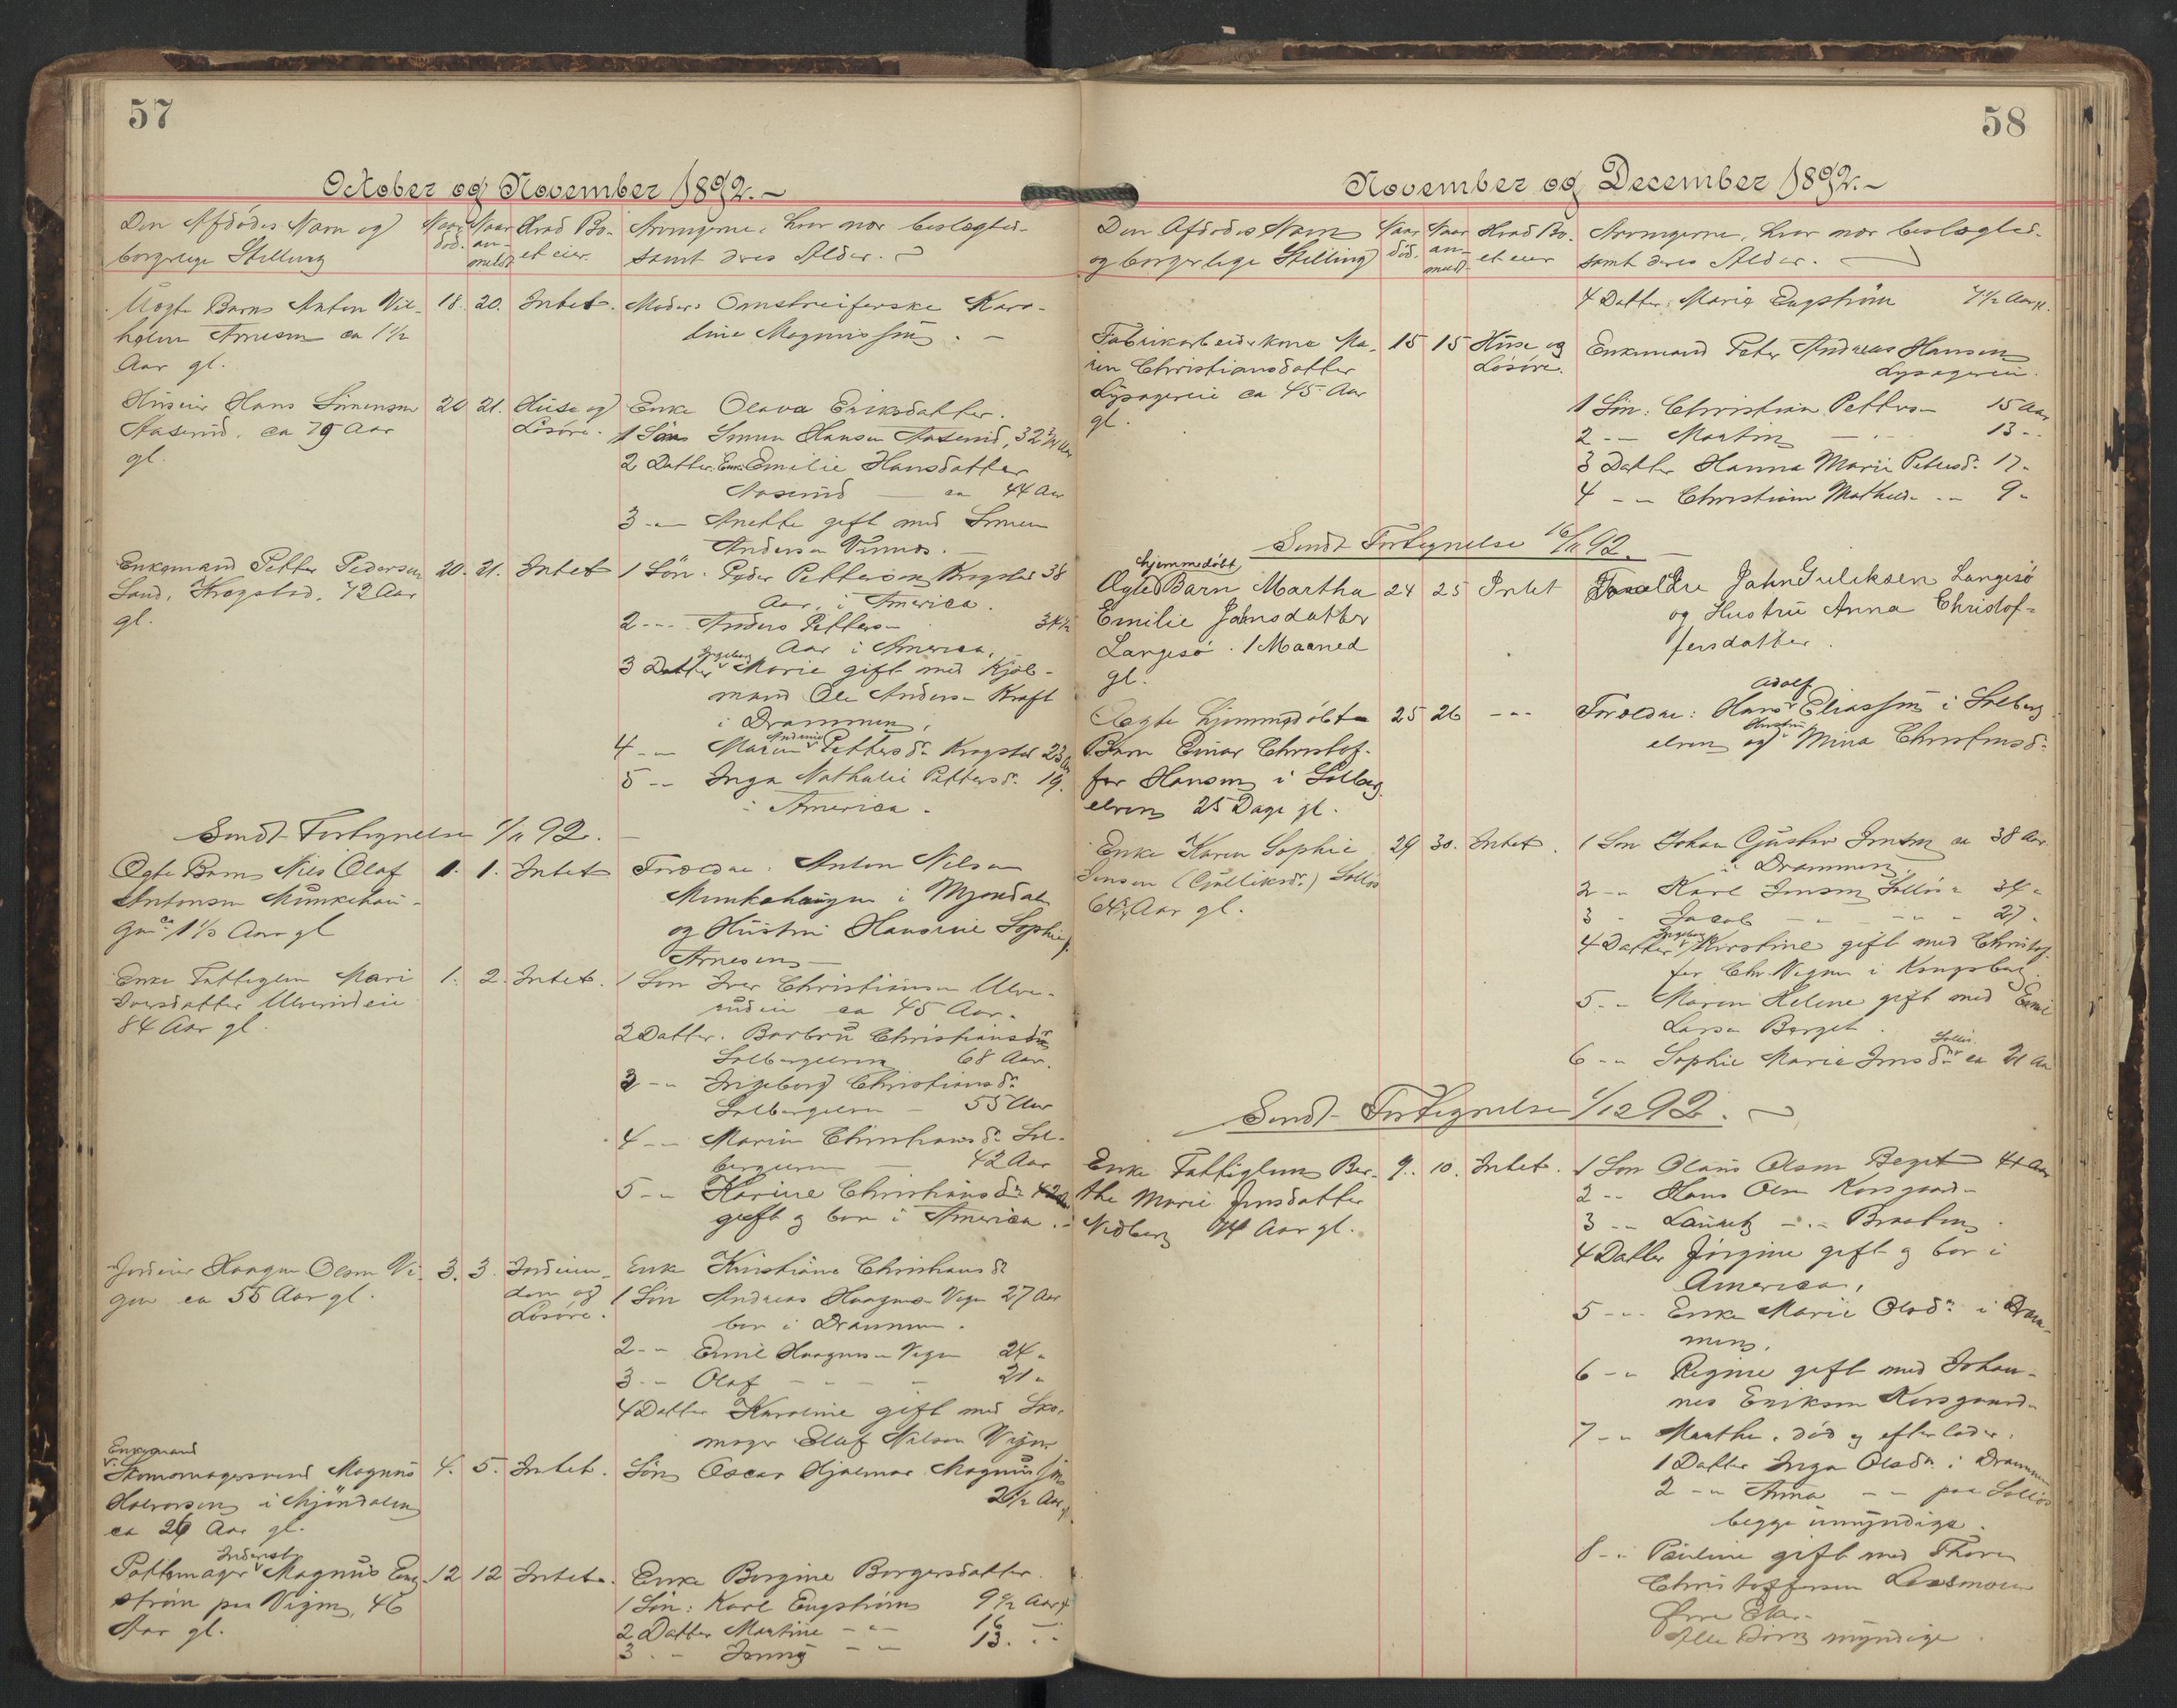 57
October og November 1892.-
Den Afdødes Navn og
borgerlige Stilling
Naar
død.
Naar
an-
meldt
Hvad Bo-
et eier.
Arvingerne, hvor nær beslægted-
samt deres Alder.
Uægte Barn Anton Vil-
helm Arnesen ca 1½
Aar gl.
18.
20.
Intet.
Moder: Omstreiferske Karo-
line Magnussen. -
Huseier Hans Simensen
Aaserud, ca 79 Aar
gl.
20
21.
Huse og
Løsøre.
Enke Olava Eriksdatter.
1 Søn Simen Hansen Aaserud, 32¾ Aar
2 Datter. Enke Emilie Hansdatter
Aaserud — ca 44 Aar
3 -"- Anette gift med Simen
Andersen
Enkemand Petter Pedersen
Sand, Krogstad, 72 Aar
gl.
20.
21.
Intet
1 Søn. Peder Pettersen Krogstad 38
Aar, i America.
2 -"- Anders Petters- 34½
Aar i America.
3 Datter Ingeborg Marie gift med Kjøb-
mand Ole Andersen Kraft
i Drammen.
4 -"- Maren Andrine Pettersdr. Krogstad 23 Aar
5 -"- Inga Nathalie Pettersdr. 19.
i America.
Sendt Fortegnelse 1/11 92.
Ægte Barn Nils Olaf
Antonsen Munkehau-
gen ca 1½ Aar gl
1.
1.
Intet
Forældre: Anton Nilsen
Munkehaugen i Mjøndal
og Hustru Hansine Sophie
Arnesen
Enke Fattiglem Mari
Iversdatter Ulverudeie
84 Aar gl.
1.
2.
Intet.
1 Søn Iver Christiansen Ulve-
rudeie ca 45 Aar.
2 Datter. Barbru Christiansdtr
Solbergelven 68 Aar.
3 -"- Ingeborg Christiansdr.
Solbergelven — 55 Aar
4 -"- Marie Christiansdr. Sol-
bergelven — 42 Aar
5 -"- Karine Christiansdr.
gift og bor i America.
Jordeier Haagen Olsen Vi-
gen ca 55 Aar gl.
3.
3.
Jordeien-
dom og
Løsøre.
Enke Kristiane Christiansdr.
1 Søn Andreas Haagens- Vigen 27 Aar
bor i Drammen.
2 -"- Emil Haagens- Vigen 24 "
3 -"- Olaf - - - 21 "
4 Datter Karoline gift med Sko-
mager Olaf Nilsen Vigen
Enkemand
Skomagersvend Magnus
Halvorsen i Mjøndalen
ca 26 Aar gl.
4.
5.
Intet.
Søn Oscar Hjalmar Magnussen
2½ Aar gl.
Indersts
Pottemager Magnus Eng-
strøm paa Vigen, 46
Aar gl.
12
12
Intet.
Enke Borgine Borgersdatter.
1 Søn: Karl Engstrøm 9½ Aar gl
2 Datter Martine -"- 16
3 -"- Jenny -"- 13. -"-
58
November og December 1892.-
Den Afdødes Navn
og borgerlige Stilling
Naar
død.
Naar
an-
meldt
Hvad Bo-
et eier
Arvingerne, hvor nær beslægted-
samt deres Alder.
4 Datter: Marie Engstrøm 7½ Aar gl.
Fabrikarbeiderkone Ma-
ren Christiansdatter
Lysagereie ca 45 Aar
gl.
15
15
Huse og
Løsøre.
Enkemand Peter Andreas Hansen
Lysagereie.
1 Søn: Christian Petters- 15 Aar
2 -"- Martin - " - 13 -"-
3 Datter Hanna Marie Petersdr. 17 "
4 -"- Christiane Mathilde -"- 9 "
Sendt Fortegnelse 16/11 92.
hjemmedøbt
Ægte Barn Martha
Emilie Johnsdatter
Langesø. 1 Maaned
gl.
24
25
Intet
Forældre John Juliksen Langesø
og Hustru Anna Christof-
fersdatter.
Ægte hjemmedøbt
Barn Einar Christof-
fer Hansen i Solberg-
elven 25 Dage gl.
25
26
-"-
Forældre: Hans Adolf Eliassen i Solberg
elven og Hustru Mina Christensdr.
Enke Karen Sophie
Jensen (Gulliksdr.) Solløs
64 Aar gl.
29
30.
Intet.
1 Søn Johan Gustav Jensen ca 38 Aar
i Drammen
2 -"- Karl Jensen Solløs " 34 "
3 " Jacob -"- -"- " 27 "
4 Datter Ingeborg Kirstine gift med Christof-
fer Chr. Vigen i Kongsberg.
5 -"- Maren Helene gift med Emil
Larsen Berget.
6 -"- Sophie Marie Jensdr. Solløs ca 21 Aar
Sendt Fortegnelse 1/12 92.
Enke Fattiglem Ber-
the Marie Jensdatter
Nedberg 74 Aar gl.
9.
10.
Intet.
1 Søn Olaus Olsen Berget 44 Aar
2 -"- Hans Olsen Korsgaard-
3 -"- Lauritz -"- Braaten
4 Datter Jørgine gift og bor i
America,
5 -"- Enke Marie Olsdr. i Dram-
men,
6 -"- Regine gift med Johan-
nes Eriksen Korsgaard-
7 -"- Marthe, død og efterlader:
1 Datter Inga Olsdr. i Drammen
2 -"- Anna -"- paa Solløs
begge umyndige.
8 -"- Pauline gift med Thorer
Christoffersen
Øvre Eker.
Alle Børn myndige.